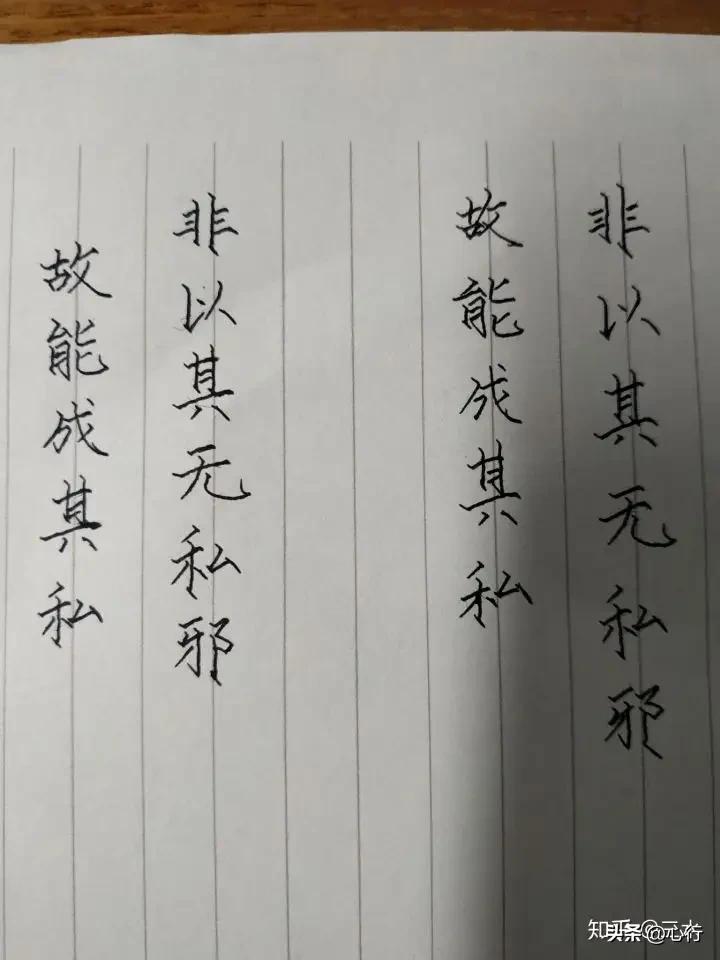 非以其无私邪
故能成其私
非以其无私邪
故能成其私
头条@心行